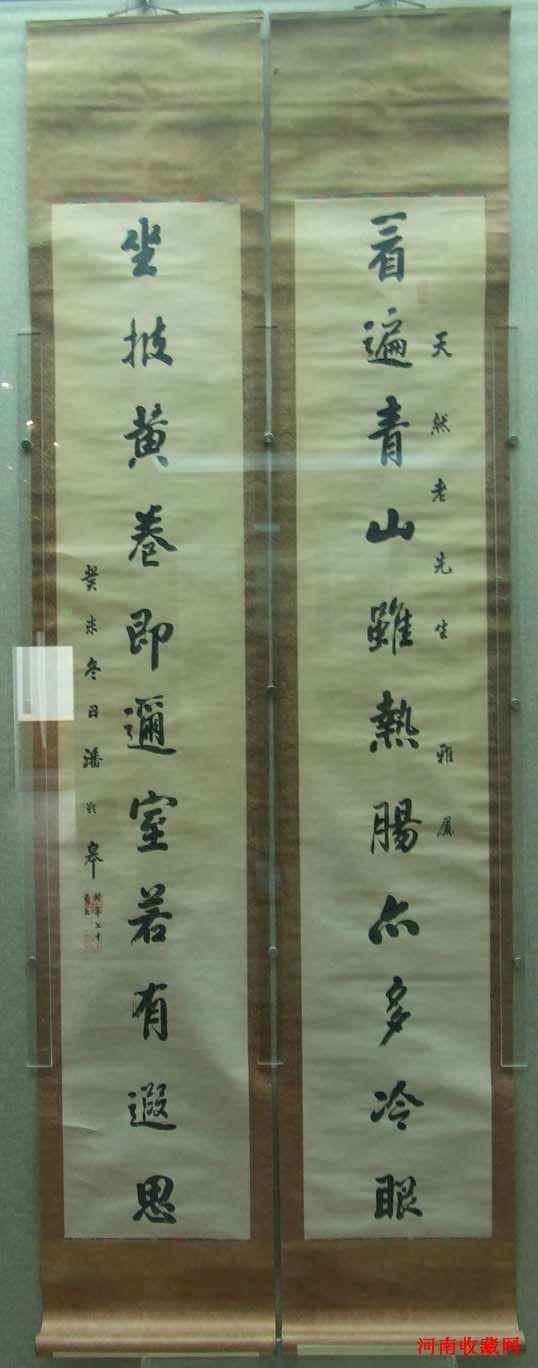 看遍青山雖熱腸亦多冷眼
天然老先生 雅屬
坐擁黃卷即邇室若有遐思
癸未冬日潘齡皋
時年七十
河南收藏网